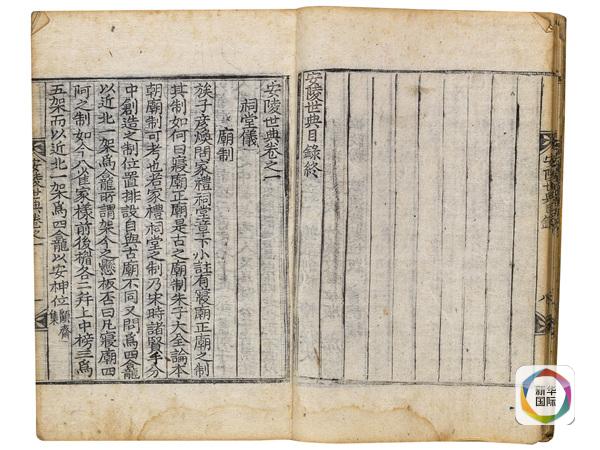 安陵世典目錄終
安陵世典卷之一
祠堂儀
廟制
族子彦煥問家禮祠堂章下小註有寢廟正廟之制
其制如何曰寢廟正廟是古之廟制朱子大全論本
朝廟制可考也若家禮祠堂之制乃宋時諸賢手分
中創造之制位置排設自與古廟不同又問爲四龕
以近北一架爲龕所謂架今之懸板否曰凡寢廟四
阿之制如今八雀家樣前後楹各二幷上中樑三爲
五架而以近北一架爲四龕以安神位
集
安陵世典卷之一
一
新华
国际